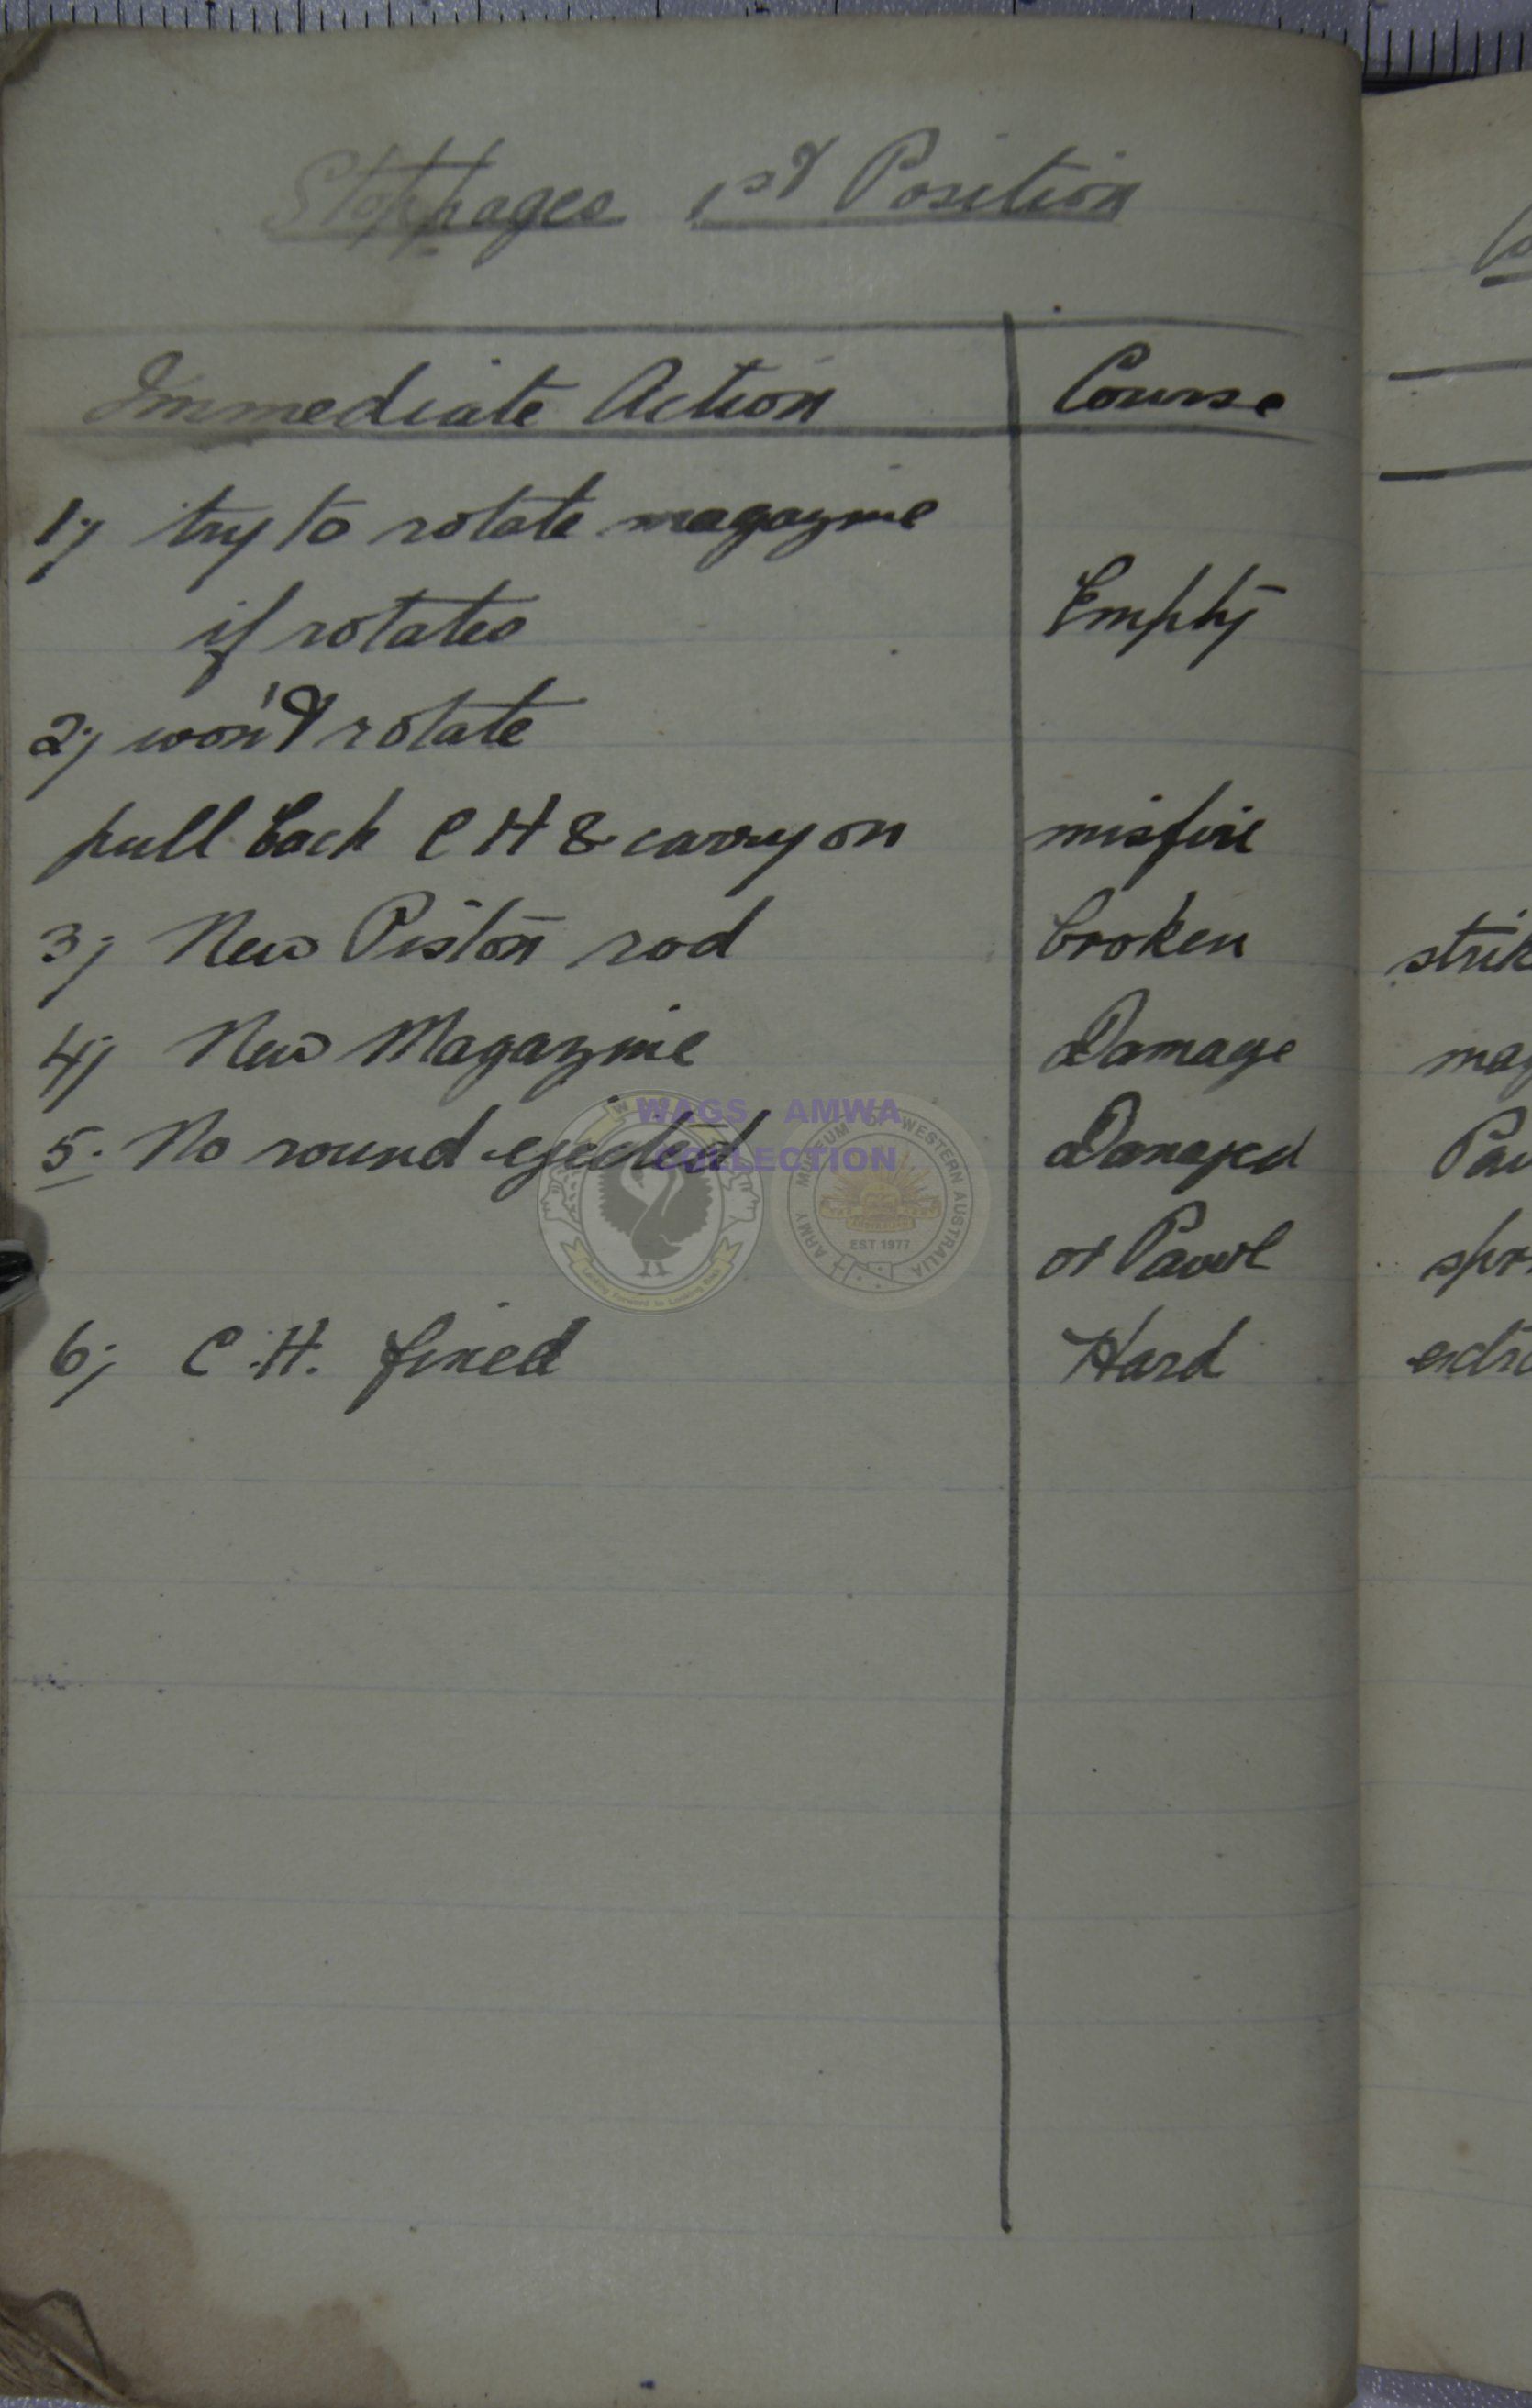 Stoppages 1st Position
Immediate Action Course
1; try to rotate magazine
if rotates Empty
2; won't rotate
pull back C H & carry on misfire
3; New Piston rod broken
4; New Magazine Damage
5. No round ejected Damaged
or Pawl
6; C.H. fixed Hard
strik
mag
Paw
spr
extra
WAGS AMWA
COLLECTION
ARMY MUSEUM OF WESTERN AUSTRALIA
EST. 1977
Looking Forward to Looking Back